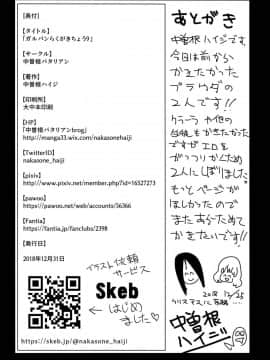 【奥付】
【タイトル】
「ガルパンらくがきちょう59」
【サークル】
中曽根バタリアン
【著作】
中曽根ハイジ
【印刷所】
大中本印刷
【HP】
「中曽根バタリアンbrog」
http://manga33.wix.com/nakasonehaiji
【TwitterID】
nakasone_haiji
【pixiv】
http://www.pixiv.net/member.php?id=16527273
【pawoo】
https://pawoo.net/web/accounts/36366
【Fantia】
https://fantia.jp/fanclubs/2398
【発行日】
2018年12月31日
イラスト依頼
サービス
Skeb
はじめ
ました
https://skeb.jp/@nakasone_haiji
あとがき
中曽根ハイジです。
今日は前から
かきたかった
プラウダの
2人です!!
クラーラや他の
もかきたかった
ですがエロを
がっつりかくため
2人にしぼりました。
もっとページが
ほしかったので
またあらためて
かきたいです…
2018 12/25
クリスマスに
中曽根
ハイジ